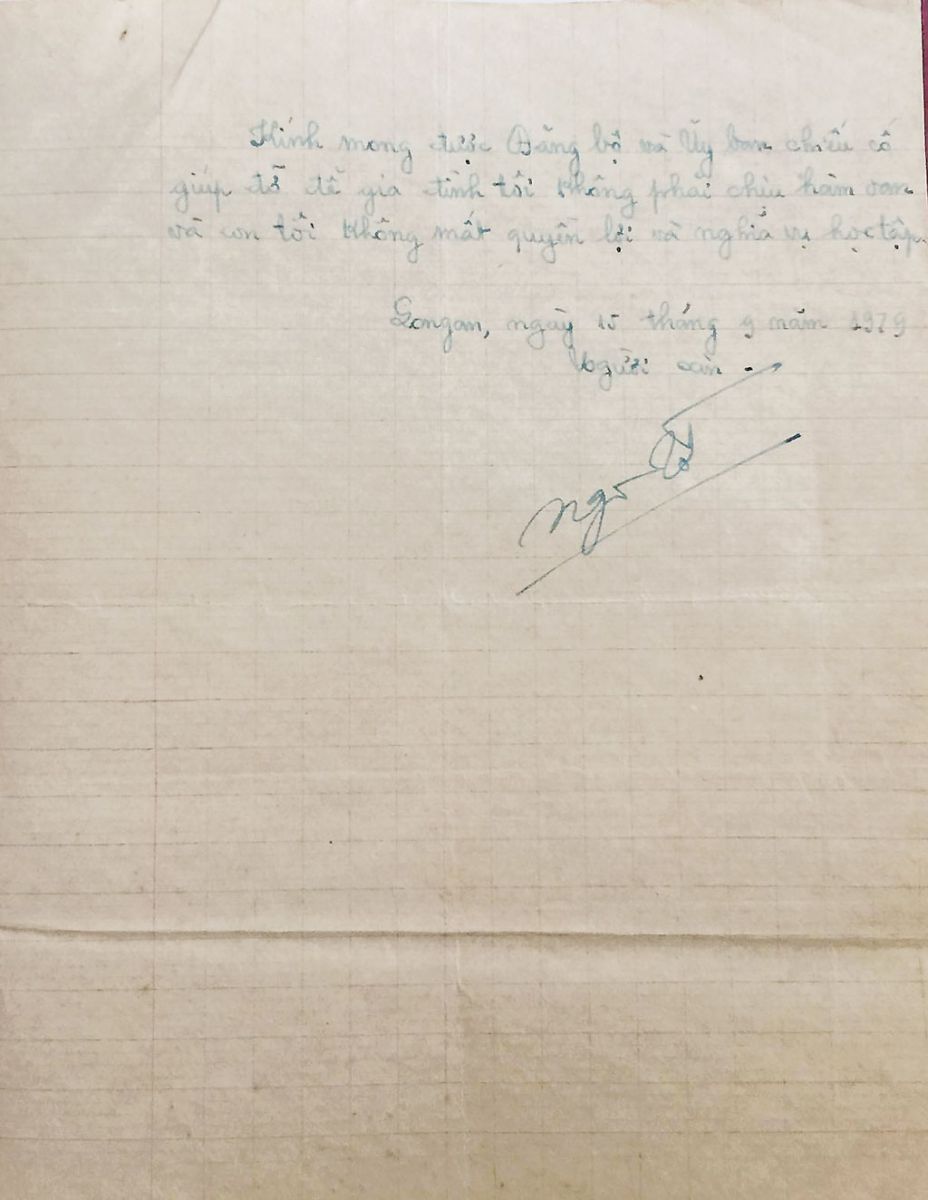 Kính mong được Đảng bộ và Ủy ban chiếu cố
giúp đỡ để gia đình tôi không phải chịu hàm oan
và con tôi không mất quyền lợi và nghĩa vụ học tập.
Longan, ngày 15 tháng 9 năm 1979
Người xin
Ngô